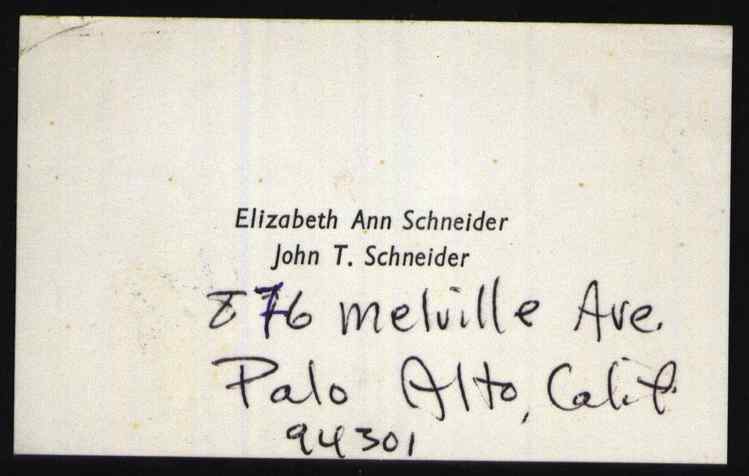 Elizabeth Ann Schneider
John T. Schneider
876 Melville Ave.
Palo Alto, Calif.
94301